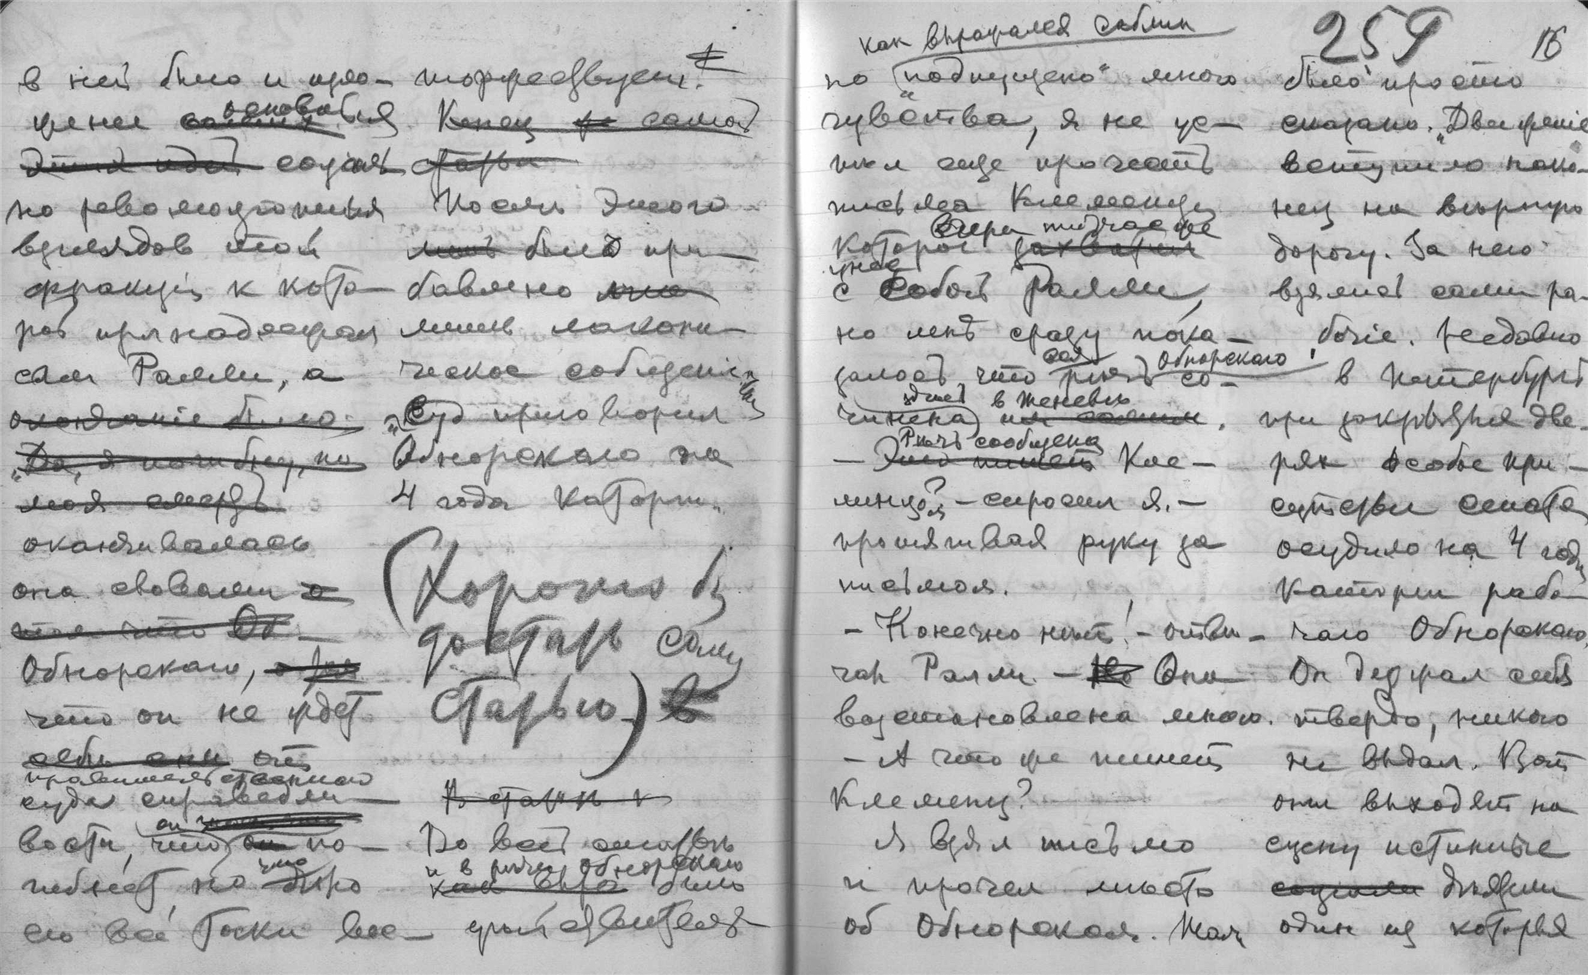 в ней было и изло-
жение основныя
социаль
но революцiонныя
взглядов той
фракцiи к кото-
рой принадлежал
сам Ралли, а
окончанiе было
"Да, я погибну, но
моя смерть
оканчивалась
она словами
Обнорскаго,
что он не ждет
себе от
правительственного
суда справедли-
вости, что он по-
гибнет, но что дело
его всё таки вос-
торжествует!
Конец самой
статьи
После этого
было при-
бавлено
лишь лакони-
ческое сообщенiе
"Суд приговорил
Обнорскаго на
4 года каторги"
(Хорошо бы
достать саму
статью)
В статье
Во всей статье
и в речи Обнорскаго
было
как выражался Саблин
259
16
по "подпущено" много
чувства, я не ус-
пел еще прочесть
письма Клеменца
которое вчера
унес
с собой Ралли,
но мне сразу пока-
залось что речь Обнорского со-
чинена здесь в Женеве
- Речь сообщена Кле-
менцом? - спросил я, -
протягивая руку за
письмом.
- Конечно нет! - отве-
чал Ралли - Она
возстановлена много.
- А что же пишет
Клеменц?
Я взял письмо
и прочел место
об Обнорском. Там
было просто
сказано. "Движенiе
вступило нако-
нец на верную
дорогу. За него
взялись сами ра-
бочiе. Недавно
в Петербурге
при закрытыя две-
рях особое при-
сутствiе сената
осудило на 4 года
каторги рабо-
чаго Обнорскаго,
Он держал себя
твердо, никого
не выдал. Вот
они выходят на
сцену истинные
деятели
один из которыя